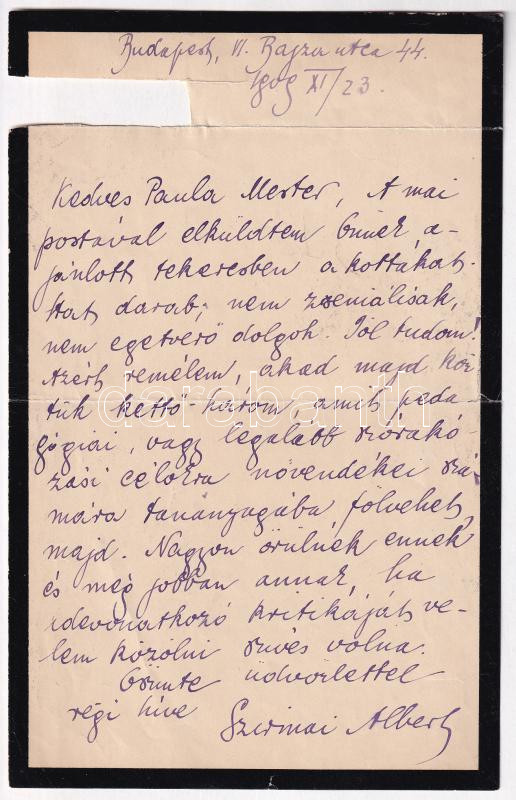 Budapest, VI. Bajza utca 44.
1909 XI/23.
Kedves Paula Mester, A mai
postával elküldtem Önnek a-
jánlott tekercsben a kottákat.
Hat darab; nem zseniálisak,
nem égetverő dolgok. Jól tudom!
Azért remélem, akad majd köz-
tük kettő-három, amit peda-
gógiai, vagy legalább szórakó-
zási célokra növendékei szá-
mára tananyagába fölvehet
majd. Nagyon örülnék ennek
és még jobban annak, ha
idevonatkozó kritikáját ve-
lem közölni szíves volna.
Őszinte üdvözlettel
régi híve
Szirmai Albert
darabanth